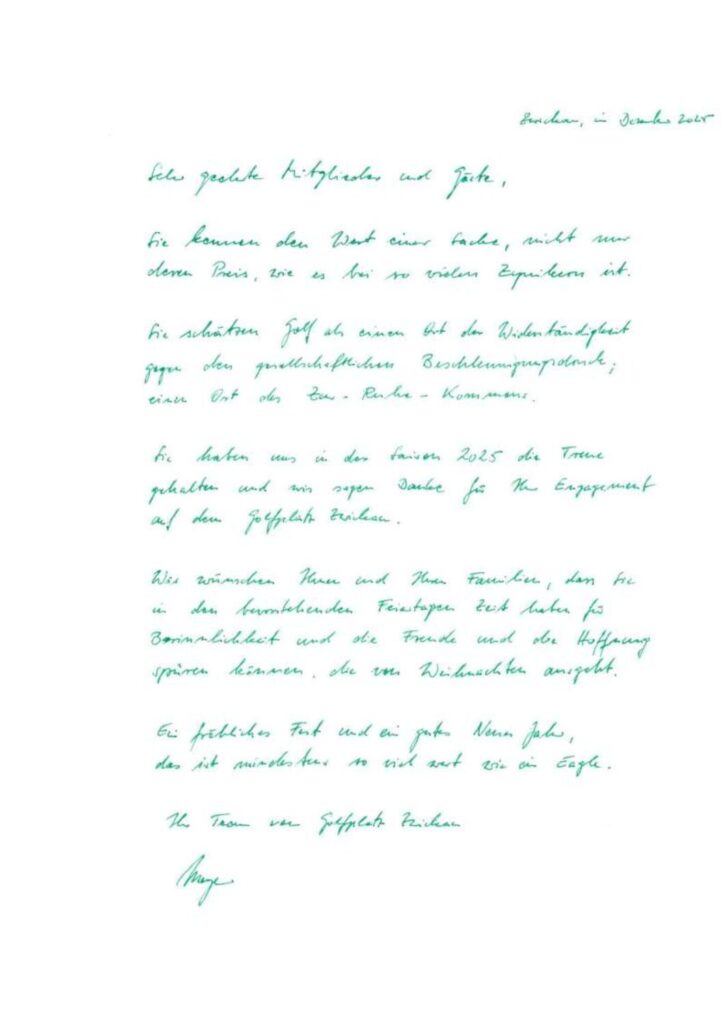 Zwickau, im Dezember 2025
Sehr geehrte Mitglieder und Gäste,
Sie kennen den Wert einer Sache, nicht nur
deren Preis, wie es bei so vielen Zynikern ist.
Sie schätzen Golf als einen Ort der Widerständigkeit
gegen den gesellschaftlichen Beschleunigungsdruck;
einen Ort des Zur-Ruhe-Kommens.
Sie haben uns in der Saison 2025 die Treue
gehalten und wir sagen Danke für Ihr Engagement
auf dem Golfplatz Zwickau.
Wir wünschen Ihnen und Ihren Familien, dass Sie
in den bevorstehenden Feiertagen Zeit haben für
Besinnlichkeit und die Freude und die Hoffnung
spüren können, die von Weihnachten ausgeht.
Ein fröhliches Fest und ein gutes Neues Jahr,
das ist mindestens so viel wert wie ein Eagle.
Ihr Team vom Golfplatz Zwickau